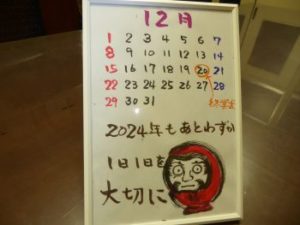 12月
1 2 3 4 5 6 7
8 9 10 11 12 13 14
15 16 17 18 19 20 21
22 23 24 25 26 27 28
29 30 31
2024年もあとわずか
1日1日を
大切に